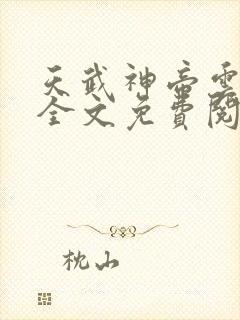 天武神帝雲
全文免費閱
枕山